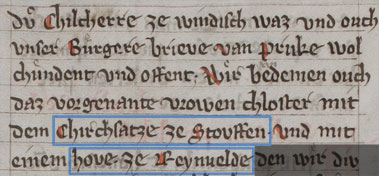 dv̊ Chilcherre ze windisch waz vnd ouch
vnser Burgere brieve van Prukе wol
chu̇ndent vnd offent. Wir bedemen ouch
daz vorgenante vrowen chloster mit
dem Chirchsatze ze Stouffen. vnd mit
einem hove. ze Reynuelde den wir div